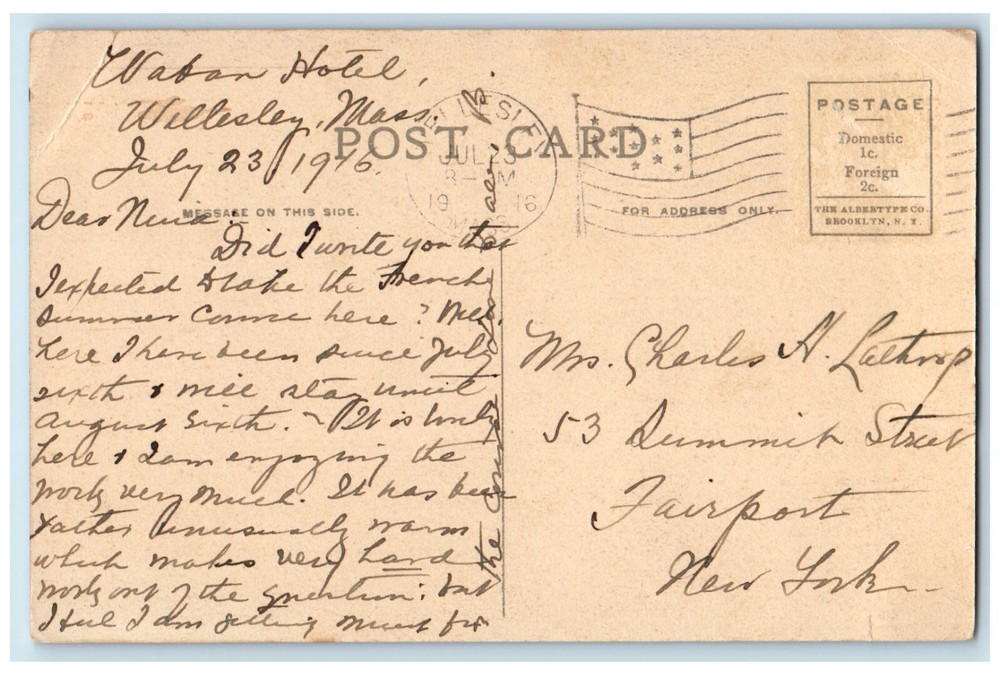 Waban Hotel,
Wellesley, Mass.
July 23, 1916.
Dear Nina
Did I write you that
I expected to take the French
summer course here? Well
here I have been since July
sixth & will stay until
August sixth. - It is lovely
here & I am enjoying the
work very much. It has been
rather unusually warm
which makes very hard
work out of the question: but
I feel I am getting much fr
the course
POST CARD
MESSAGE ON THIS SIDE.
FOR ADDRESS ONLY.
JUL
19 16
MASS
POSTAGE
Domestic
1c.
Foreign
2c.
THE ALBERTYPE CO.
BROOKLYN, N. Y.
Mrs. Charles H. Lathrop
53 Summit Street
Fairport
New York